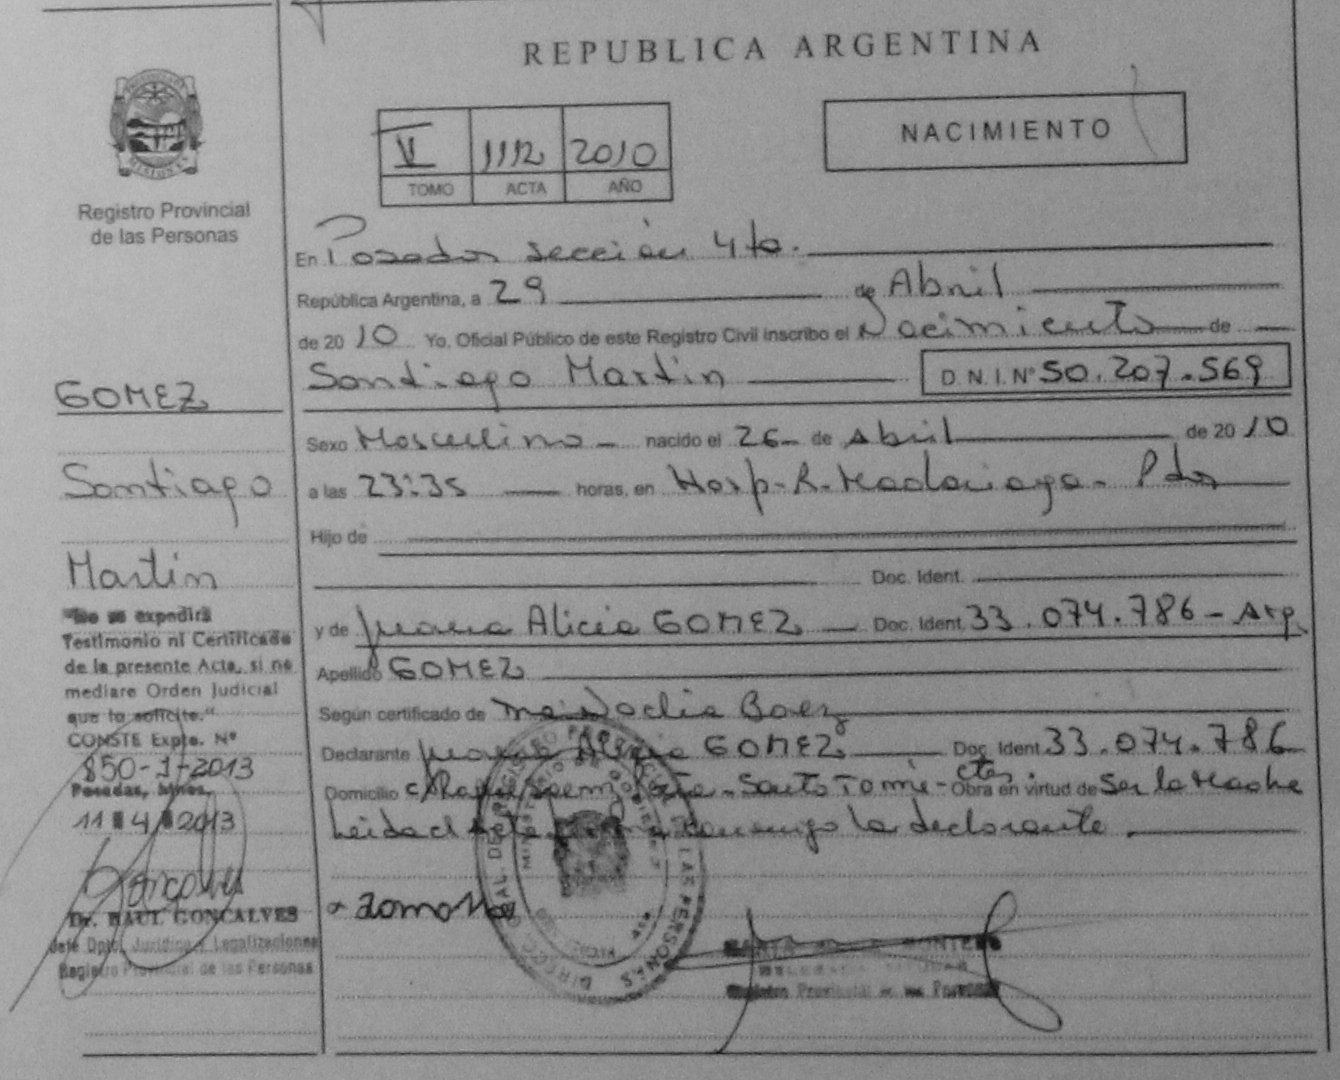 REPUBLICA ARGENTINA
NACIMIENTO
V 1112 2010
TOMO ACTA AÑO
Registro Provincial
de las Personas
En Posadas sección 4ta.
República Argentina, a 29 de Abril
de 2010 Yo, Oficial Público de este Registro Civil inscribo el Nacimiento de
Santiago Martin D.N.I. Nº 50.207.569
GOMEZ
Santiago
Martin
Sexo Masculino nacido el 26 de Abril de 2010
a las 23:35 horas, en Hosp. R. Madariaga - Pdas
Hijo de
Doc. Ident.
y de Juana Alicia GOMEZ Doc. Ident. 33.074.786 - Arg.
Apellido GOMEZ
Según certificado de Ma. Noelia Baez
Declarante Juana Alicia GOMEZ Doc. Ident. 33.074.786
Domicilio Santo Tomé - Ctes Obra en virtud de Ser la Madre
Leída el Acta firma conmigo la declarante.
"No se expedirá
Testimonio ni Certificado
de la presente Acta, si no
mediare Orden Judicial
que lo solicite."
CONSTE Expte. Nº
850-1-2013
Posadas, Mnes.
11 4 2013
Dr. RAUL GONCALVES
Jefe Dpto. Jurídico y Legalizaciones
Registro Provincial de las Personas
REGISTRO PROVINCIAL DE LAS PERSONAS
MINISTERIO DE GOBIERNO
MONTERO
Registro Provincial de las Personas